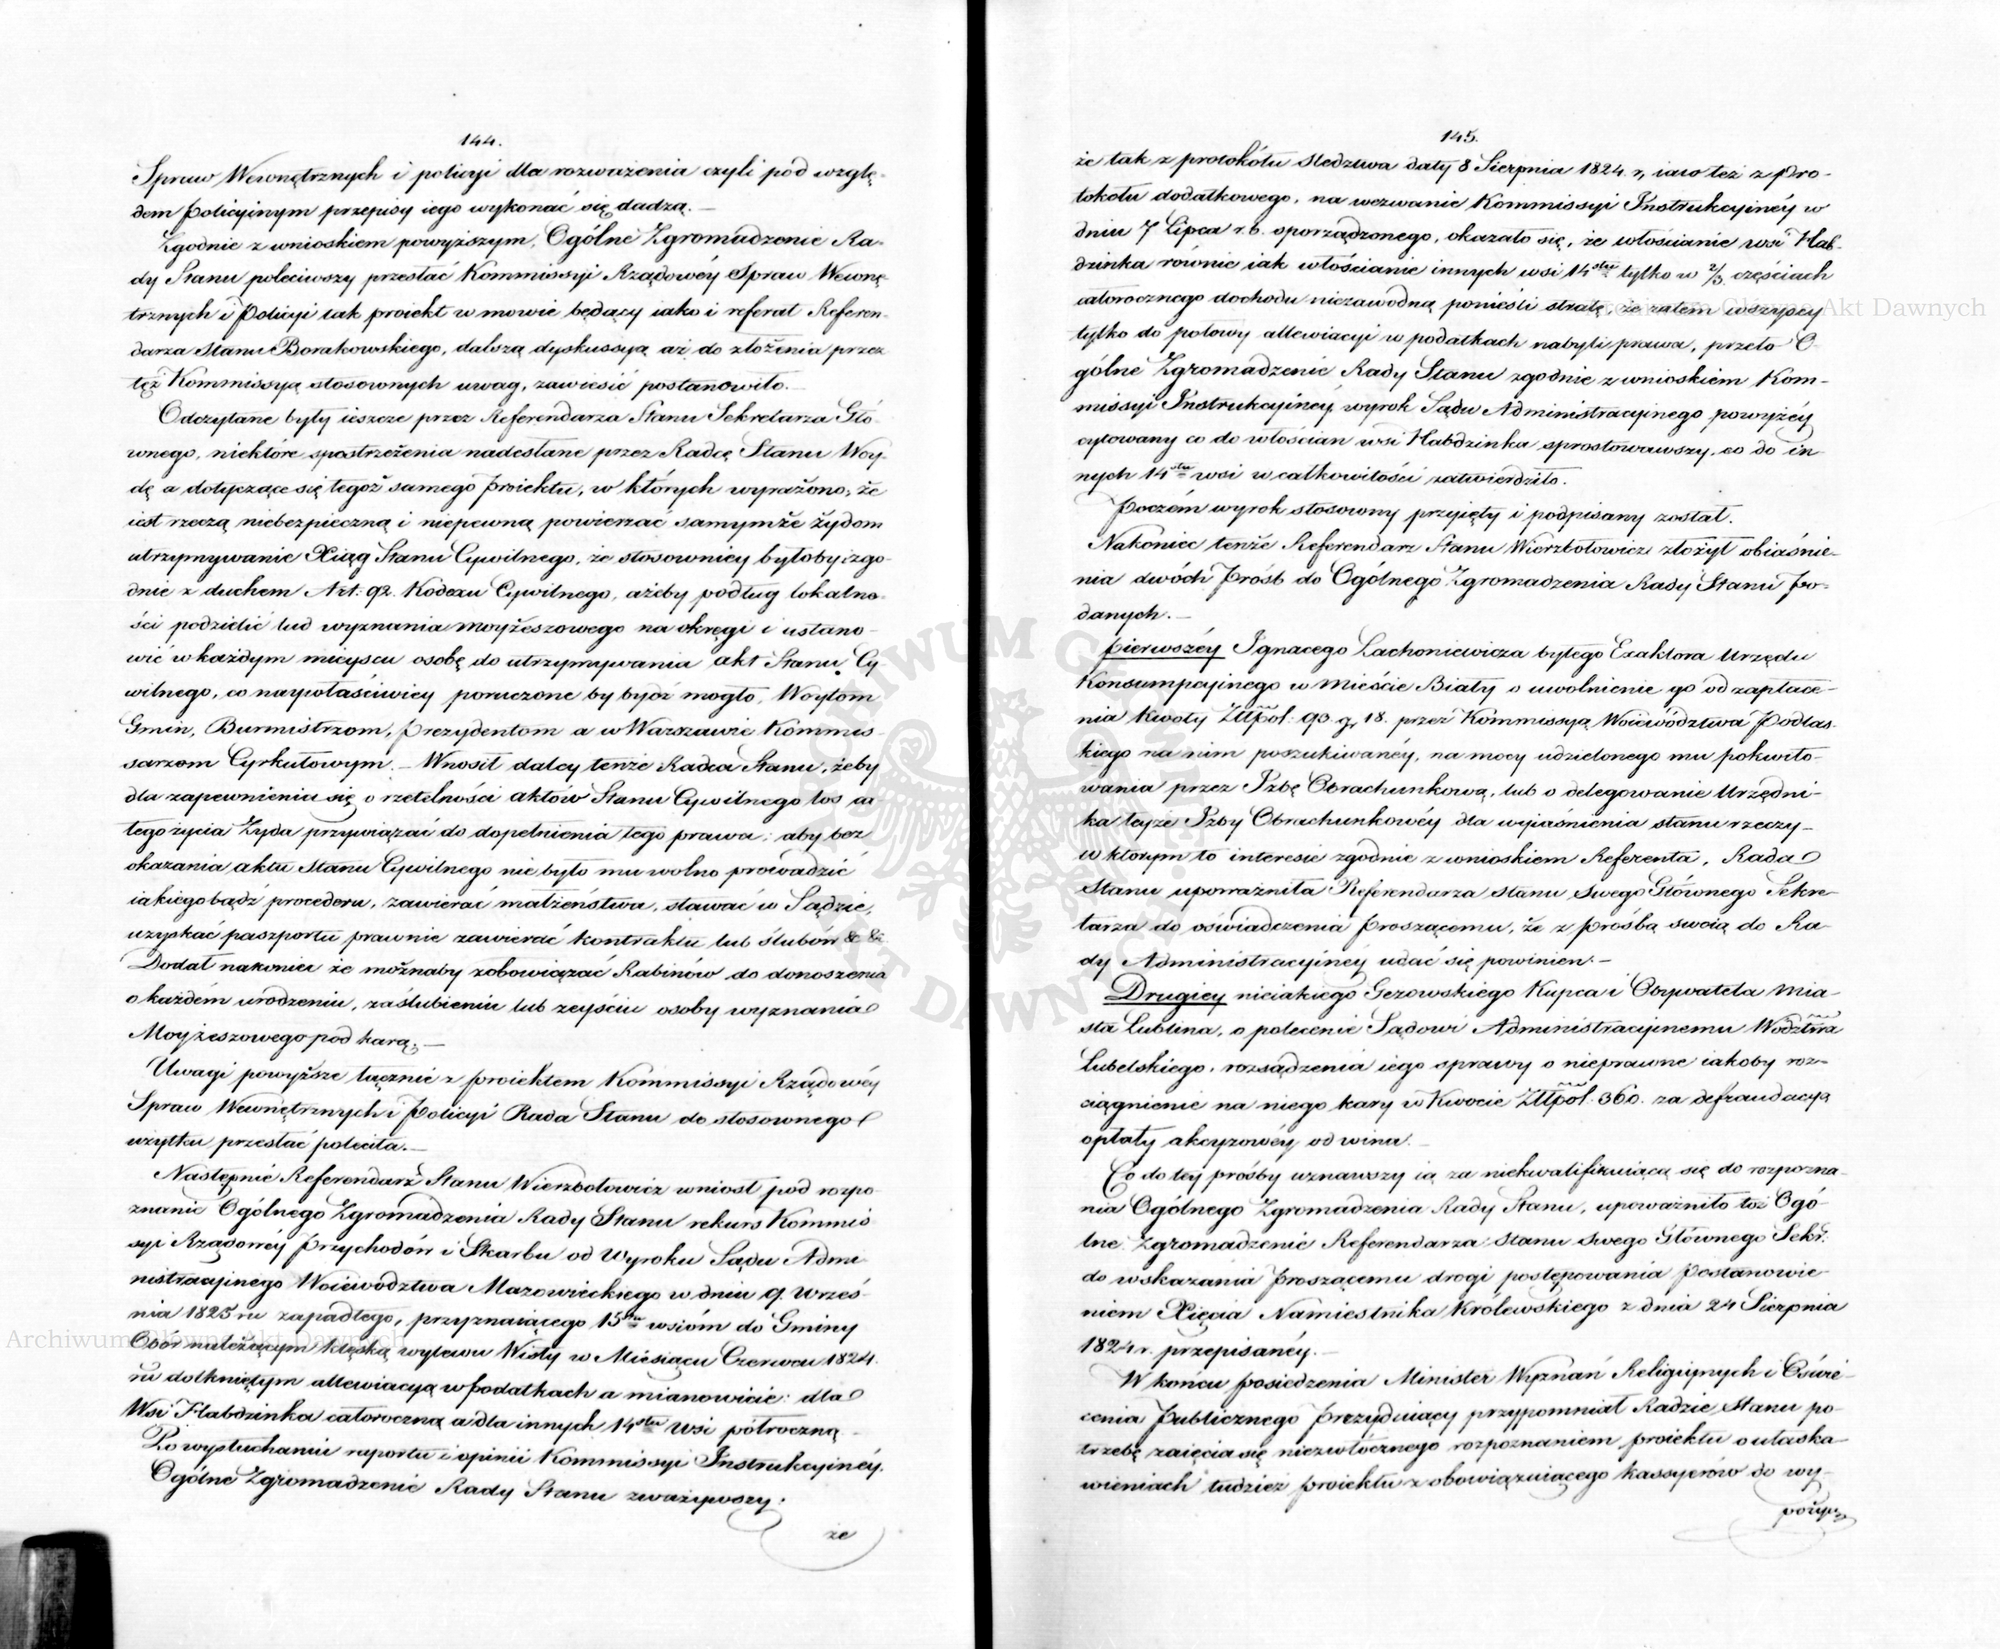 144.
Spraw Wewnętrznych i policyi dla rozważenia czyli pod wzglę-
dem Policyinym przepisy iego wykonać się dadzą.—
Zgodnie z wnioskiem powyższym, Ogólne Zgromadzenie Ra-
dy Stanu poleciwszy przesłać Kommissyi Rządowéy Spraw Wewnę-
trznych i Policyi tak proiekt w mowie będący iako i referat Referen-
darza Stanu Borakowskiego, dalszą dyskussyą aż do złożenia przez
też Kommissyą stosownych uwag, zawiesić postanowiło.—
Odczytane były ieszcze przez Referendarza Stanu Sekretarza Głó-
wnego, niektóre spostrzeżenia nadesłane przez Radcę Stanu Woy-
dę a dotyczące się tegoż samego Proiektu, w których wyrażono, że
iest rzeczą niebezpieczną i niepewną powierzać samymże żydom
utrzymywanie Xiąg Stanu Cywilnego, że stosowniey byłoby i zgo-
dnie z duchem Art: 92. Kodexu Cywilnego, ażeby podług lokalno-
ści podzielić lud wyznania moyżeszowego na okręgi i ustano-
wić w każdym mieyscu osobę do utrzymywania akt Stanu Cy-
wilnego, co naywłaściwiey poruczone by bydź mogło, Woytom
Gmin, Burmistrzom, Prezydentom a w Warszawie Kommis-
sarzom Cyrkułowym.— Wnosił daley tenże Radca Stanu, żeby
dla zapewnienia się o rzetelności aktów Stanu Cywilnego los ca
tego życia Żyda przywiązać do dopełnienia tego prawa; aby bez
okazania aktu Stanu Cywilnego nie było mu wolno prowadzić
iakiegobądź procederu, zawierać małżeństwa, stawać w Sądzie,
uzyskać paszportu prawnie zawierać kontraktu lub ślubów &c &c
Dodał nakoniec że możnaby zobowiązać Rabinów do donoszenia
o każdém urodzeniu, zaślubieniu lub zeyściu osoby wyznania
Moyżeszowego pod karą.—
Uwagi powyższe łącznie z proiektem Kommissyi Rządowéy
Spraw Wewnętrznych i Policyi Rada Stanu do stosownego
użytku przesłać poleciła.—
Następnie Referendarz Stanu Wierzbołowicz wniosł pod rozpo-
znanie Ogólnego Zgromadzenia Rady Stanu rekurs Kommis
syi Rządowéy Przychodów i Skarbu od Wyroku Sądu Admi
nistracyinego Woiewództwa Mazowieckiego w dniu 9. Wrześ-
nia 1825 ru zapadłego, przyznaiącego 15stu wsióm do Gminy
Obór należącym klęską wylewu Wisły w Miesiącu Czerwcu 1824.
ru dotkniętym allewiacyą w podatkach a mianowicie: dla
Wsi Habdzinka całoroczną a dla innych 14stu wsi półroczną—
Po wysłuchaniu raportu i opinii Kommissyi Instrukcyinéy,
Ogólne Zgromadzenie Rady Stanu zważywszy:
że
145.
że tak z protokółu śledztwa daty 8 Sierpnia 1824 r, iako też z Pro-
tokołu dodatkowego, na wezwanie Kommissyi Instrukcyinéy w
dniu 7 Lipca r. b. sporządzonego, okazało się, że włościanie wsi Hab-
dzinka równie iak włościanie innych wsi 14stu tylko w 2/3 częściach
całorocznego dochodu niezawodną ponieśli stratę, że zatem wszyscy
tylko do połowy allewiacyi w podatkach nabyli prawa, przeto O-
gólne Zgromadzenie Rady Stanu zgodnie z wnioskiem Kom-
missyi Instrukcyinéy wyrok Sądu Administracyinego powyżéy
cytowany co do włościan wsi Habdzinka sprostowawszy, co do in-
nych 14stu wsi w całkowitości zatwierdziło.
Poczém wyrok stosowny przyięty i podpisany został.
Nakoniec tenże Referendarz Stanu Wierzbołowicz złożył obiaśnie-
nia dwóch Próśb do Ogólnego Zgromadzenia Rady Stanu Po-
danych.—
Pierwszéy Ignacego Zachoniewicza byłego Exaktora Urzędu
Konsumpcyinego w Mieście Biały o uwolnienie go od zapłace-
nia kwoty Złtpol: 93. gr 18. przez Kommissyą Woiewództwa Podlas-
kiego na nim poszukiwanéy, na mocy udzielonego mu pokwito-
wania przez Izbę Obrachunkową, lub o delegowanie Urzędni-
ka teyże Izby Obrachunkowéy dla wyiaśnienia stanu rzeczy—
w którym to interesie zgodnie z wnioskiem Referenta, Rada
Stanu upoważniła Referendarza Stanu Swego Głównego Sekre-
tarza do oświadczenia Proszącemu, że z prośbą swoią do Ra-
dy Administracyinéy udać się powinien.—
Drugiey nieiakiego Gezowskiego Kupca i Obywatela Mia-
sta Lublina, o polecenie Sądowi Administracyinemu Wodztwa
Lubelskiego, rozsądzenia iego sprawy o nieprawne iakoby roz-
ciągnienie na niego kary w Kwocie Złtpol: 360. za defraudacyą
opłaty akcyzowéy od wina.—
Co do tey prośby uznawszy ią za niekwalifikuiącą się do rozpozna-
nia Ogólnego Zgromadzenia Rady Stanu, upoważniło toż Ogó-
lne Zgromadzenie Referendarza Stanu Swego Głównego Sekr:
do wskazania Proszącemu drogi postępowania Postanowie-
niem Xięcia Namiestnika Królewskiego z dnia 24 Sierpnia
1824 r. przepisanéy.—
W końcu posiedzenia Minister Wyznań Religiynych i Oświe-
cenia Publicznego Prezyduiący przypomniał Radzie Stanu po-
trzebę zaięcia się niezwłocznego rozpoznaniem proiektu o ułaska-
wieniach tudzież proiektu zobowiązuiącego kassyerów do wy-
pożyc
Archiwum Główne Akt Dawnych
Archiwum Główne Akt Dawnych
ARCHIWUM GŁÓWNE AKT DAWNYCH